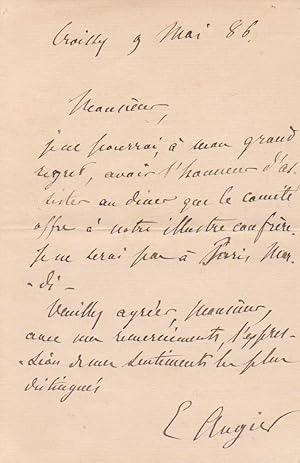 Croissy 9 Mai 86.
Monsieur,
je ne pourrai, à mon grand
regret, avoir l'honneur d'as-
sister au diner que le comité
offre à notre illustre confrère.
je ne serai pas à Paris Mar-
-di-
Veuillez agréer, Monsieur,
avec mes remerciements, l'expres-
-sion de mes sentiments les plus
distingués
E Augier